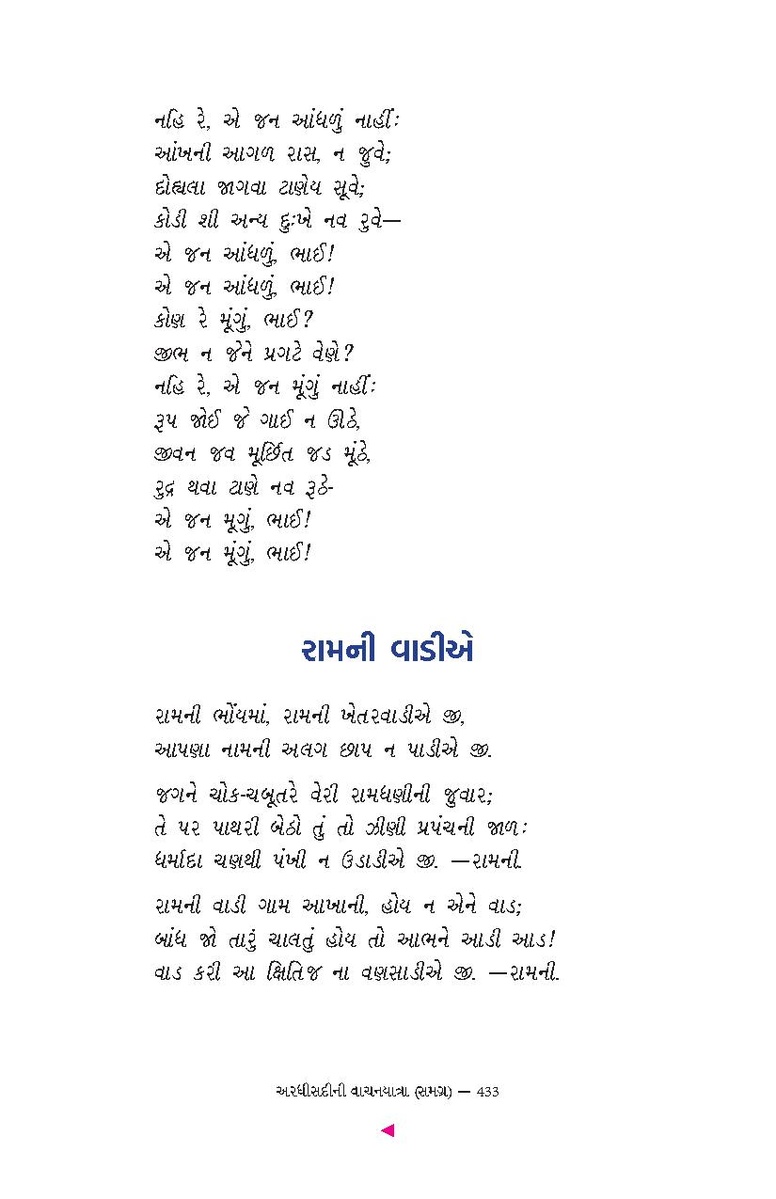 નહિ રે, એ જન આંધળું નાહીંઃ
આંખની આગળ રાસ, ન જુવે;
દોહ્યલા જાગવા ટાણેય સૂવે;
કોડી શી અન્ય દુઃખે નવ રુવે—
એ જન આંધળું, ભાઈ!
એ જન આંધળું, ભાઈ!
કોણ રે મૂંગું, ભાઈ?
જીભ ન જેને પ્રગટે વેણે?
નહિ રે, એ જન મૂંગું નાહીંઃ
રૂપ જોઈ જે ગાઈ ન ઊઠે,
જીવન જવ મૂર્છિત જડ મૂંઠે,
રુદ્ર થવા ટાણે નવ રૂઠે-
એ જન મૂગું, ભાઈ!
એ જન મૂંગું, ભાઈ!
રામની વાડીએ
રામની ભોંયમાં, રામની ખેતરવાડીએ જી,
આપણા નામની અલગ છાપ ન પાડીએ જી.
જગને ચોક-ચબૂતરે વેરી રામધણીની જુવાર;
તે પર પાથરી બેઠો તું તો ઝીણી પ્રપંચની જાળઃ
ધર્માદા ચણથી પંખી ન ઉડાડીએ જી. —રામની.
રામની વાડી ગામ આખાની, હોય ન એને વાડ;
બાંધ જો તારું ચાલતું હોય તો આભને આડી આડ!
વાડ કરી આ ક્ષિતિજ ના વણસાડીએ જી. —રામની.
અરધીસદીની વાચનયાત્રા (સમગ્ર) — 433